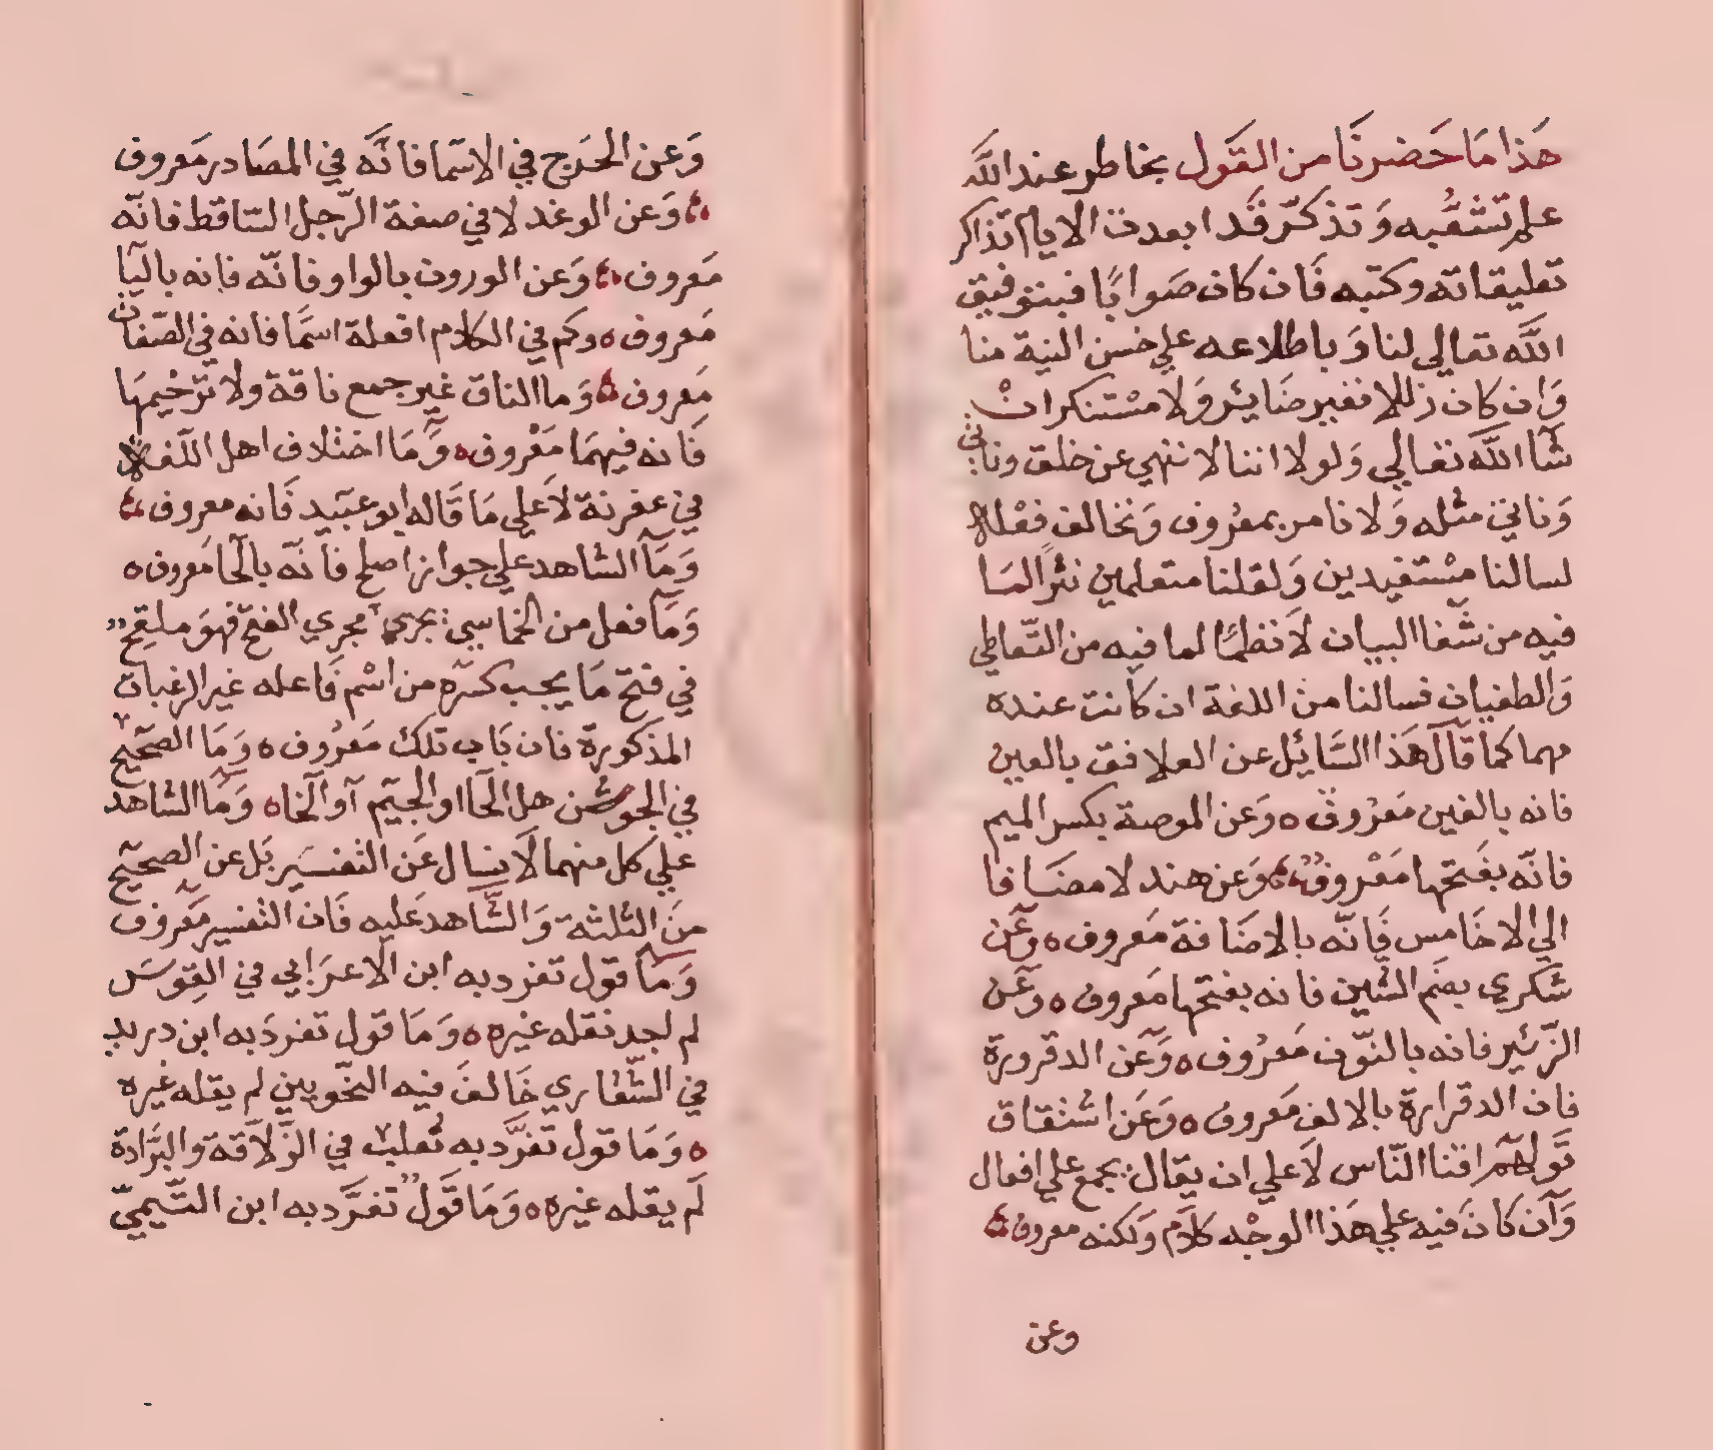 هَذا مَا حَضرنَا من القَول بخاطر عند الله
علم تشعُّبه وَتذكّر قَد ابعدت الايام تذاكر
تعليقاته وكتبه فَان كان صَوابًا فبتوفيق
اللَّه تعالي لنا وَباطلاعه علي حسن النية منا
وَان كان زللا فغير ضَاير وَلا مسْتنكر ان
شآ اللَّه تعالي وَلولا اننا لا ننهي عن خلق
وَناتي مثله وَلا نامر بمعرُوف وَنخالف فعْله
لسالنا مسْتفيدين وَلقلنا متعلمين نثرًا لما
فيه من شَفا البيان لاَ نظمًا لما فيه من التّعاطي
وَالطغيان فسالنا من اللغة ان كانت عنده
مهما كما قاَل هَذا السَّايُل عن العلافق بالعين
فانه بالغين مَعرُوف ه وَعن الموصة بكسر الميم
فانّه بفَتحها مَعْروف وَعَن هند لا مضَافا
الي الاخَامس فَانّه بالاضَافة مَعروف ه وعَن
شَكري بضَم الشين فانه بفتحها مَعروف ه وعَن
الزّئير فانه بالنوّن مَعرُوف ه وَعَن الدقرورة
فان الدقرارة بالالف مَعروف ه وَعَن اشتقاق
قَولهم افنا النّاس لاَ علي ان يقال يجمع علي افعال
وَان كانَ فيه علي هَذا الوجْه كلاَم وَلكنه معروف
وعن
وَعن الحَرج في الاسَما فانَّه في المصَادر مَعروف
وَعن الوغد لا في صفة الرّجل السّاقط فانّه
مَعروف وَعن الورون بالواو فانّه فانه باليَا
مَعروف ه وكم في الكلام افعلة اسَمًا فانه في الصّفات
مَعروف وَما الناق غير جمع ناقة ولا ترْخيمهَا
فَانه فيهمَا مَعْروف ه وَمَا اختلاف اهل اللغة
في عفرنة لاَ علي مَا قَاله ابو عبَيد فَانه معروف
وَمَا الشاهد علي جواز اصلخ فانّه بالحَا مَعروف ه
وَمَا فعل من الخماسي يجري مجري الفتح فهوَ ملقح
في فتح مَا يجب كسَره من اسْم فَاعله غير الرغبات
المذكورة فان بَاب تلك مَعرُوف ه وَمَا الصّحيح
في الجوشن هل الحَا او الجيَم آو الخَا ه وَمَا الشاهد
علي كل منهما لاَ يسال عَن التفسَير بَل عن الصحيَح
منَ الثلثة وَالشَّاهد عَليه فَان التفسير مَعروف
وَمَا قول تفرد به ابن الاَعرَابي في القِوسَ
لم نجد نقله غيره ه وَمَا قول تفردَ به ابن دريد
في الشُّقاري خَالفَ فيه النحّويين لم يقله غيره
ه وَمَا قول تفَرَّد به ثعلب في الزّلاَقة والبَرَّادة
لَم يقله غيره ه وَمَا قَول تفرَّد به ابن التَّيميّ